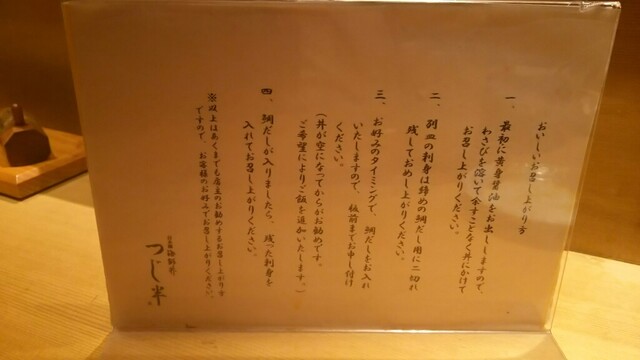 おいしいお召し上がり方
一、最初に黄身醤油をお出ししますので、
わさびを溶いて余すことなく丼にかけて
お召し上がりください。
二、別皿の刺身は締めの鯛だし用に二切れ
残しておめし上がりください。
三、お好みのタイミングで、鯛だしをお入れ
いたしますので、板前までお申し付け
ください。
(丼が空になってからがお勧めです。
ご希望によりご飯を追加いたします。)
四、鯛だしが入りましたら、残った刺身を
入れてお召し上がりください。
※以上はあくまでも店主のお勧めするお召し上がり方
ですので、お客様のお好みでお召し上がりください。
海鮮丼
つじ半